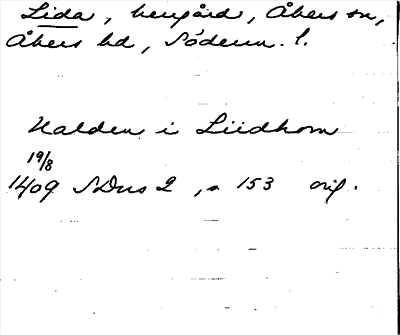 Lida, herrgård, Åkers sn,
Åkers hd, Söderm. l.
Halden i Liidhom
19/8
1409 SDns 2, s 153 orig.